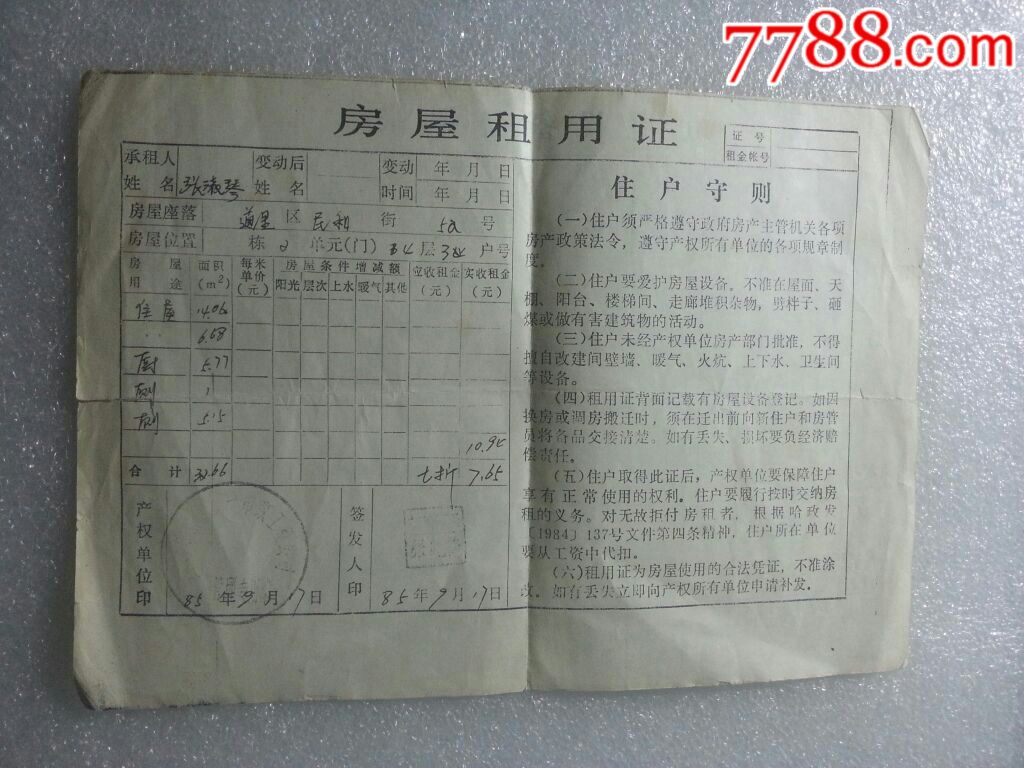 7788.com
房屋租用证
证号
租金帐号
承租人 变动后 变动 年 月 日
姓名 张淑琴 姓名 时间 年 月 日
房屋座落 道里 区 民和 街 号
房屋位置 栋 2 单元(门) 层 户号
房屋 面积 每米 房屋条件增减额 应收租金 实收租金
用途 (m²) 单价 (元) 阳光 层次 上水 暖气 其他 (元) (元)
住屋 14.06
〃 6.68
厨 5.77
厕 1
5.15
10.95
合计 32.66 七折 7.65
产权单位印 85年9月17日
签发人印 85年9月17日
住户守则
(一)住户须严格遵守政府房产主管机关各项
房产政策法令，遵守产权所有单位的各项规章制
度。
(二)住户要爱护房屋设备。不准在屋面、天
棚、阳台、楼梯间、走廊堆积杂物，劈柈子、砸
煤或做有害建筑物的活动。
(三)住户未经产权单位房产部门批准，不得
擅自改建间壁墙、暖气、火炕、上下水、卫生间
等设备。
(四)租用证背面记载有房屋设备登记。如因
换房或调房搬迁时，须在迁出前向新住户和房管
员将各品交接清楚。如有丢失、损坏要负经济赔
偿责任。
(五)住户取得此证后，产权单位要保障住户
享有正常使用的权利。住户要履行按时交纳房
租的义务。对无故拒付房租者，根据哈政发
〔1984〕137号文件第四条精神，住户所在单位
要从工资中代扣。
(六)租用证为房屋使用的合法凭证，不准涂
改。如有丢失立即向产权所有单位申请补发。